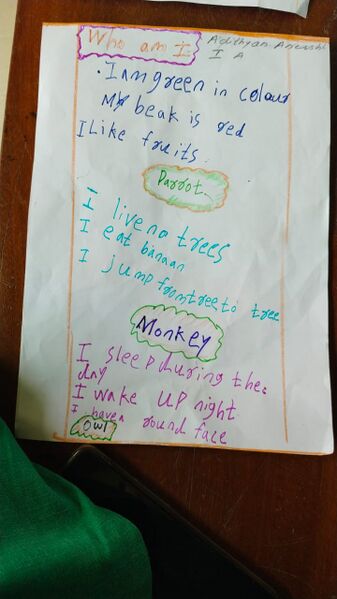 Who am I
Adithyan Aneesh
I A
. I am green in colour
My beak is red
I Like fruits.
Parrot.
I live no trees
I eat banaan
I jump from tree to tree
Monkey
I sleep during the.
day
I wake up night
I have a round face
Owl